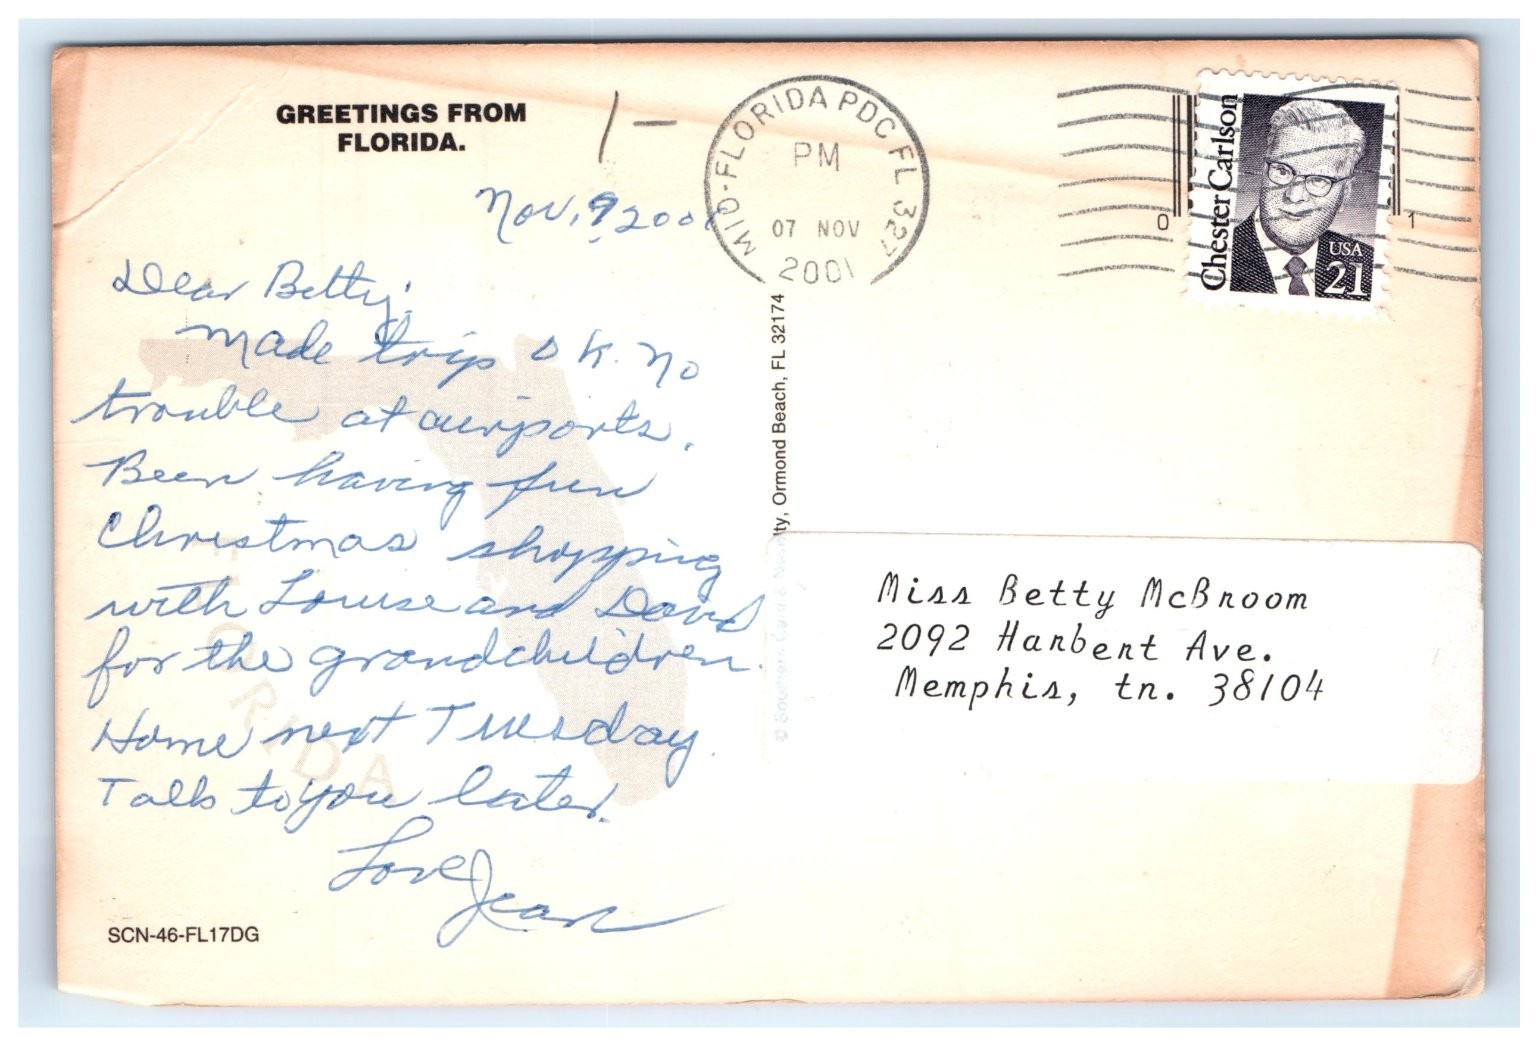 GREETINGS FROM
FLORIDA.
1 -
MID-FLORIDA PDC FL 327
PM
07 NOV
2001
0 1
Chester Carlson
USA
21
Nov. 9, 2001
Dear Betty:
Made trip O K. No
trouble at airports.
Been having fun
Christmas shopping
with Louise and David
for the grandchildren.
Home next Tuesday.
Talk to you later.
Love Jean
FLORIDA
SCN-46-FL17DG
© Southern Card & Novelty, Ormond Beach, FL 32174
Miss Betty McBroom
2092 Harbert Ave.
Memphis, tn. 38104